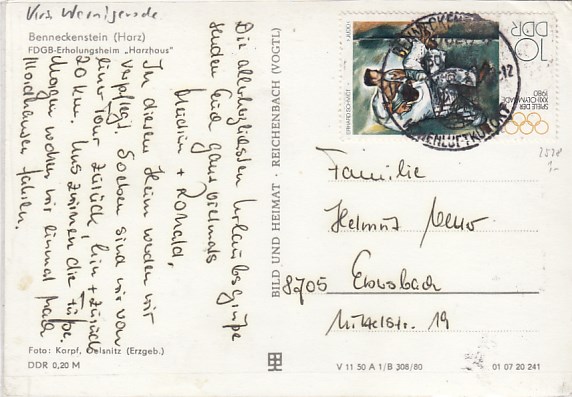 Krs. Wernigerode
Benneckenstein (Harz)
FDGB-Erholungsheim „Harzhaus"
Die allerherzlichsten Urlaubsgrüße
senden Euch ganz vielmals
+ Ronald.
In diesem Heim werden wir
verpflegt. Soeben sind wir von
einer Tour zurück, hin + zurück
20 km. Uns qualmen die Füße.
Morgen wollen wir einmal nach
Nordhausen fahren.
Foto: Korpf, Oelsnitz (Erzgeb.)
DDR 0,20 M
BILD UND HEIMAT · REICHENBACH (VOGTL)
10
DDR
SPIELE DER
XXII. OLYMPIADE
1980
BENNECKENSTEIN
Familie
Helmut
8705 Ebersbach
Mittelstr. 19
V 11 50 A 1/B 308/80
01 07 20 241